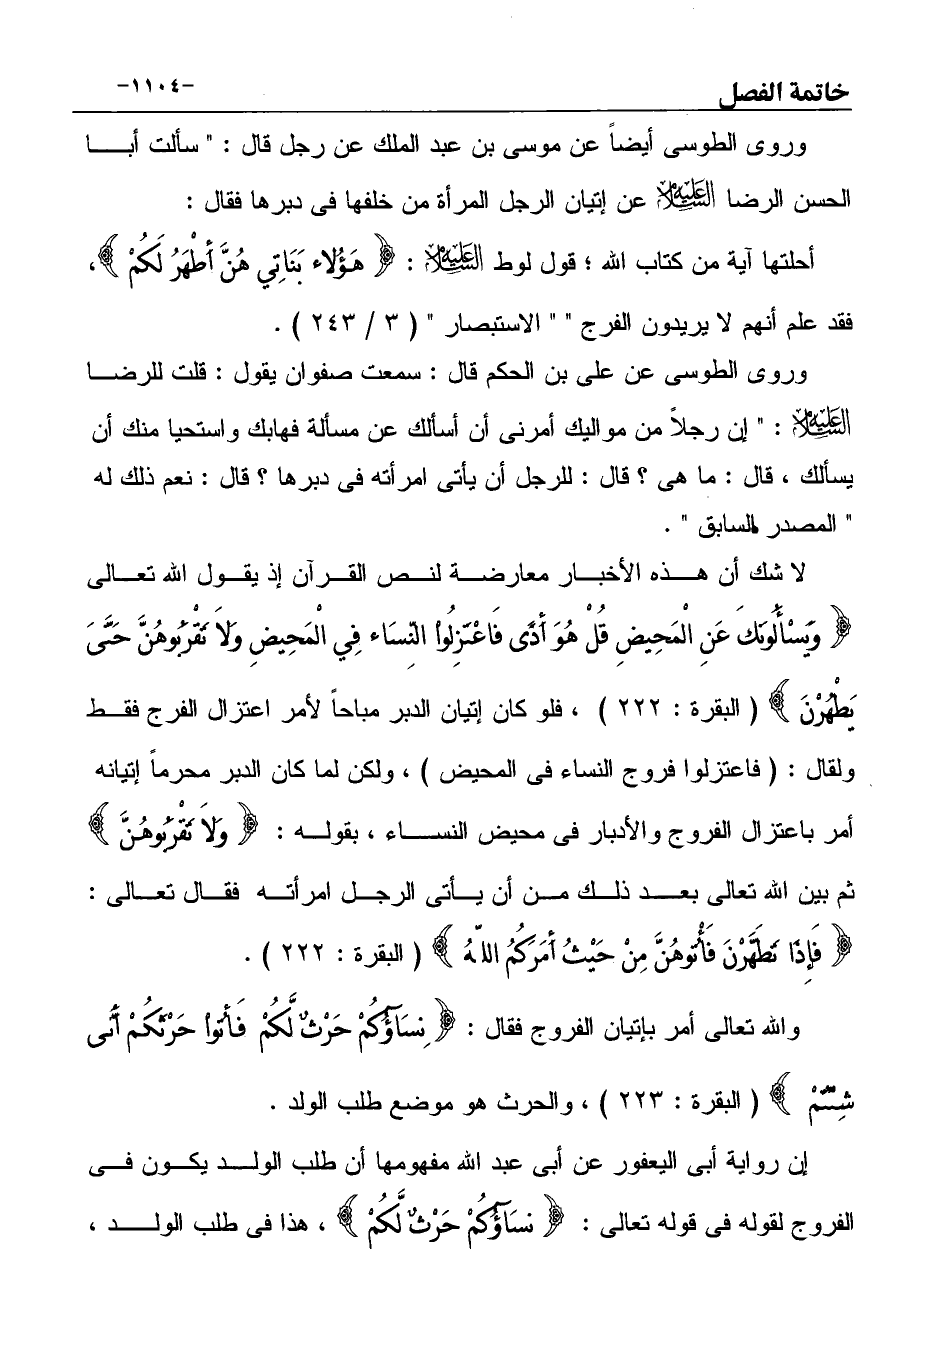 خاتمة الفصل -١١٠٤-
وروى الطوسى أيضاً عن موسى بن عبد الملك عن رجل قال : " سألت أبا
الحسن الرضا عليه السلام عن إتيان الرجل المرأة من خلفها فى دبرها فقال :
أحلتها آية من كتاب الله ؛ قول لوط عليه السلام : ﴿ هَؤُلاء بَنَاتِي هُنَّ أَطْهَرُ لَكُمْ ﴾،
فقد علم أنهم لا يريدون الفرج " " الاستبصار " ( ٣ / ٢٤٣ ) .
وروى الطوسى عن على بن الحكم قال : سمعت صفوان يقول : قلت للرضا
عليه السلام : " إن رجلاً من مواليك أمرنى أن أسألك عن مسألة فهابك واستحيا منك أن
يسألك ، قال : ما هى ؟ قال : للرجل أن يأتى امرأته فى دبرها ؟ قال : نعم ذلك له
" المصدر السابق " .
لا شك أن هذه الأخبار معارضة لنص القرآن إذ يقول الله تعالى
﴿ وَيَسْأَلُونَكَ عَنِ الْمَحِيضِ قُلْ هُوَ أَذًى فَاعْتَزِلُواْ النِّسَاء فِي الْمَحِيضِ وَلاَ تَقْرَبُوهُنَّ حَتَّىَ
يَطْهُرْنَ ﴾ ( البقرة : ٢٢٢ ) ، فلو كان إتيان الدبر مباحاً لأمر اعتزال الفرج فقط
ولقال : ( فاعتزلوا فروج النساء فى المحيض ) ، ولكن لما كان الدبر محرماً إتيانه
أمر باعتزال الفروج والأدبار فى محيض النساء ، بقوله : ﴿ وَلاَ تَقْرَبُوهُنَّ ﴾
ثم بين الله تعالى بعد ذلك من أن يأتى الرجل امرأته فقال تعالى :
﴿ فَإِذَا تَطَهَّرْنَ فَأْتُوهُنَّ مِنْ حَيْثُ أَمَرَكُمُ اللّهُ ﴾ ( البقرة : ٢٢٢ ) .
والله تعالى أمر بإتيان الفروج فقال : ﴿ نِسَآؤُكُمْ حَرْثٌ لَّكُمْ فَأْتُواْ حَرْثَكُمْ أَنَّى
شِئْتُمْ ﴾ ( البقرة : ٢٢٣ ) ، والحرث هو موضع طلب الولد .
إن رواية أبى اليعفور عن أبى عبد الله مفهومها أن طلب الولد يكون فى
الفروج لقوله فى قوله تعالى : ﴿ نِسَآؤُكُمْ حَرْثٌ لَّكُمْ ﴾ ، هذا فى طلب الولد ،